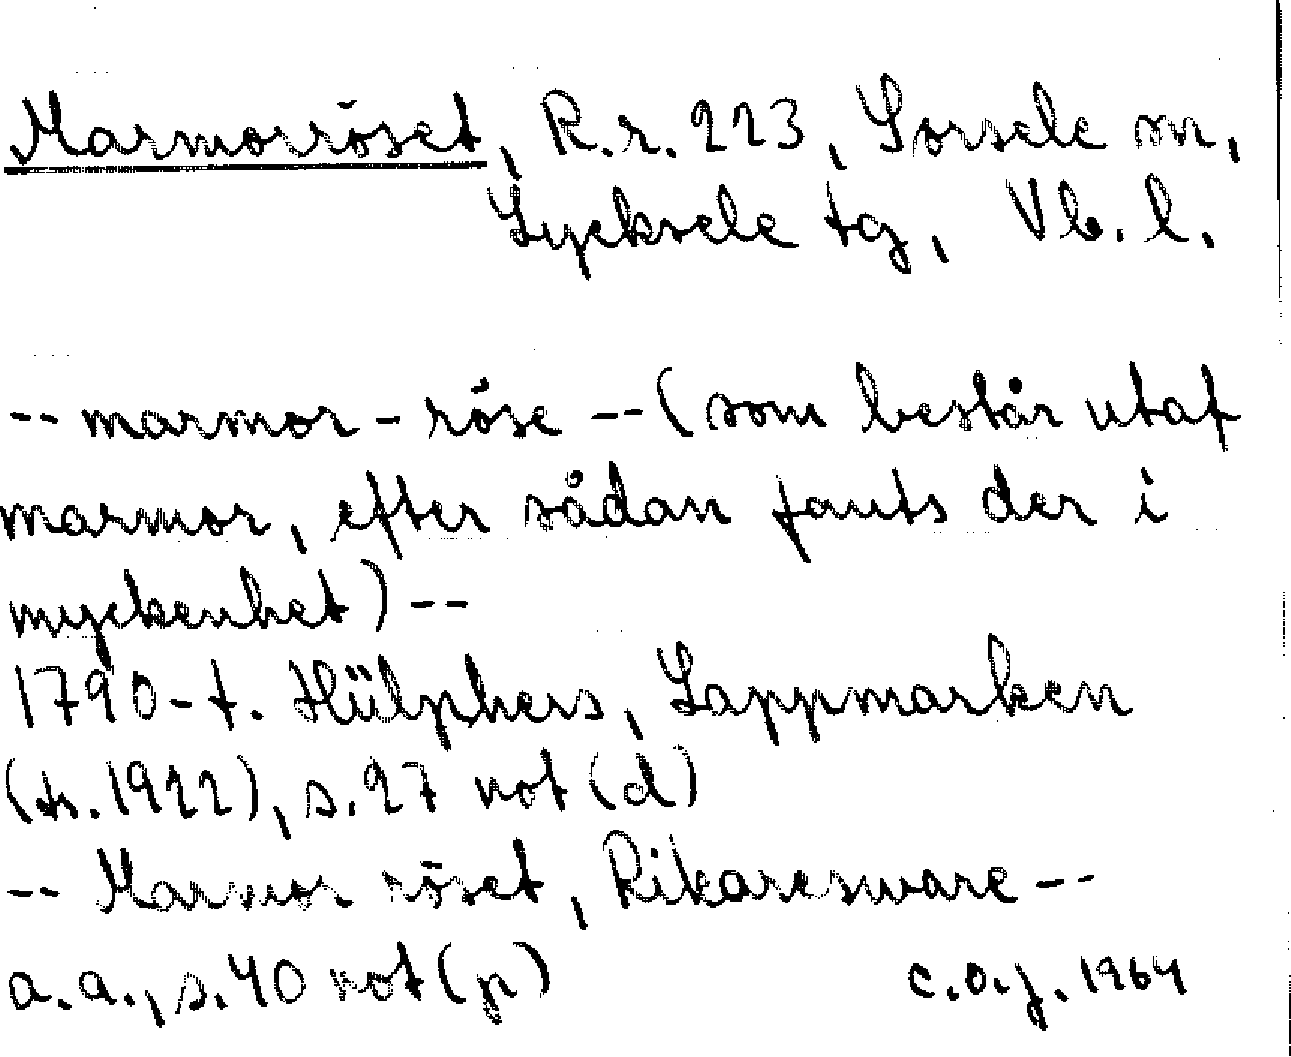 Marmorröset, R.r. 223, Sorsele sn,
Lycksele tg, Vb. l.
-- marmor-röse -- (som består utaf
marmor, efter sådan fants der i
myckenhet) --
1790-t. Hülphers, Lappmarken
(tr. 1922), s. 27 not (d)
-- Marmor röset, Rikaresware --
a.a., s. 40 not (p)
C.O.J. 1964